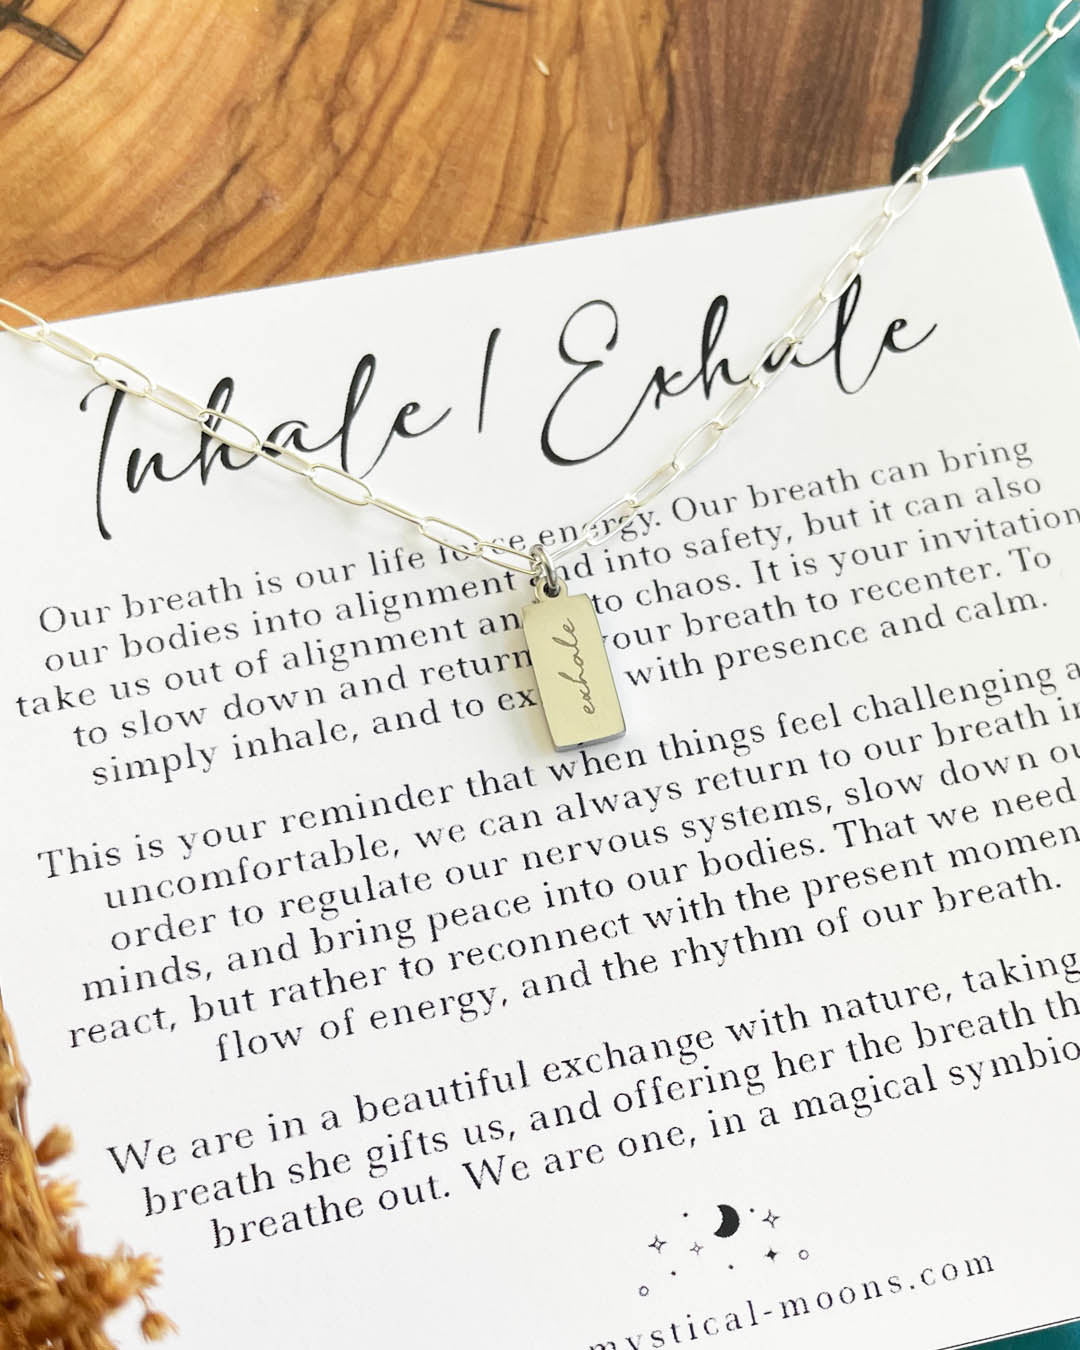 Inhale | Exhale
Our breath is our life force energy. Our breath can bring
our bodies into alignment and into safety, but it can also
take us out of alignment an to chaos. It is your invitation
to slow down and return your breath to recenter. To
simply inhale, and to ex with presence and calm.
exhale
This is your reminder that when things feel challenging a
uncomfortable, we can always return to our breath in
order to regulate our nervous systems, slow down ou
minds, and bring peace into our bodies. That we need
react, but rather to reconnect with the present momen
flow of energy, and the rhythm of our breath.
We are in a beautiful exchange with nature, taking
breath she gifts us, and offering her the breath th
breathe out. We are one, in a magical symbio
mystical-moons.com